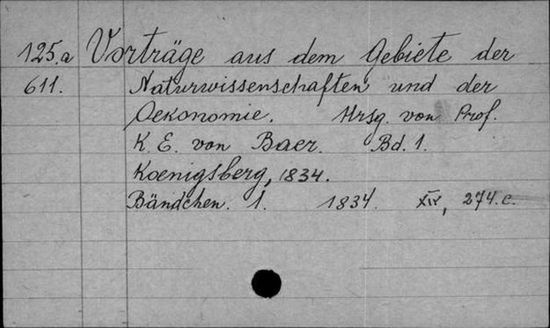 125.a Vorträge aus dem Gebiete der
611. Naturwissenschaften und der
Oekonomie. Hrsg. von Prof.
K. E. von Baer. Bd. 1.
Koenigsberg, 1834.
Bändchen. 1. 1834. XIV, 274.c.